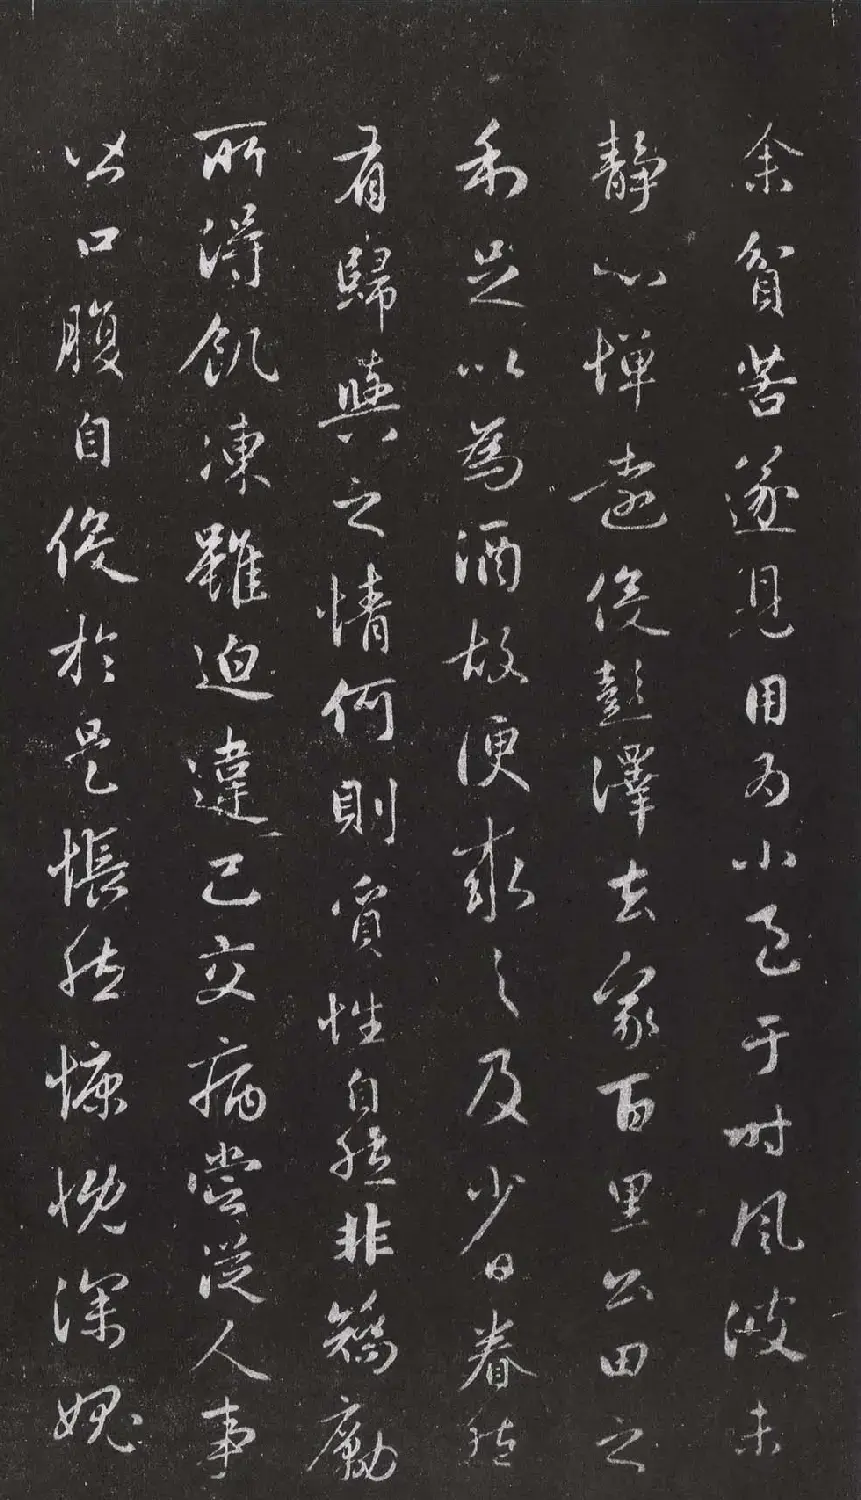 余貧苦遂見用為小邑于時風波未
靜心憚遠役彭澤去家百里公田之
利足以為酒故便求之及少日眷然
有歸與之情何則質性自然非矯勵
所得飢凍雖迫違己交病嘗從人事
皆口腹自役於是悵然慷慨深愧